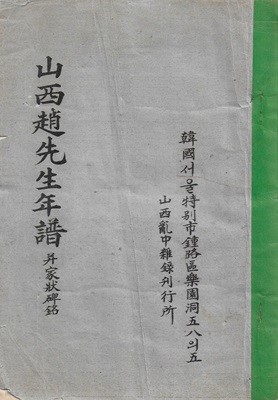 山西趙先生年譜 并家狀碑銘
韓國서울特別市鍾路區樂園洞五八의五
山西亂中雜錄刊行所